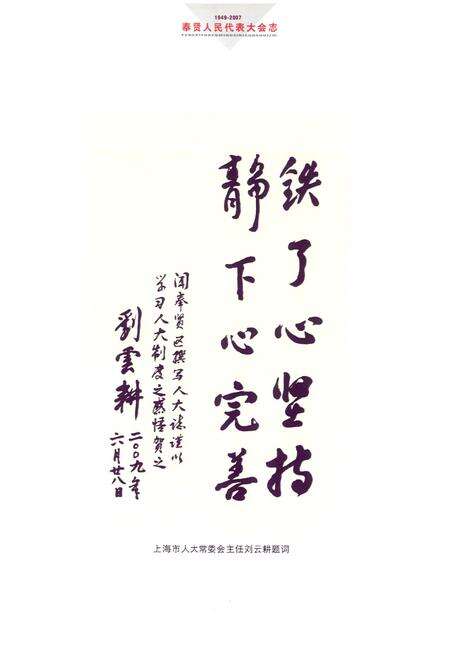 1949-2007
奉贤人民代表大会志
铁了心坚持
静下心完善
闻奉贤区撰写人大志谨以
学习人大制度之感悟贺之
刘云耕
二〇〇九年
六月廿八日
上海市人大常委会主任刘云耕题词